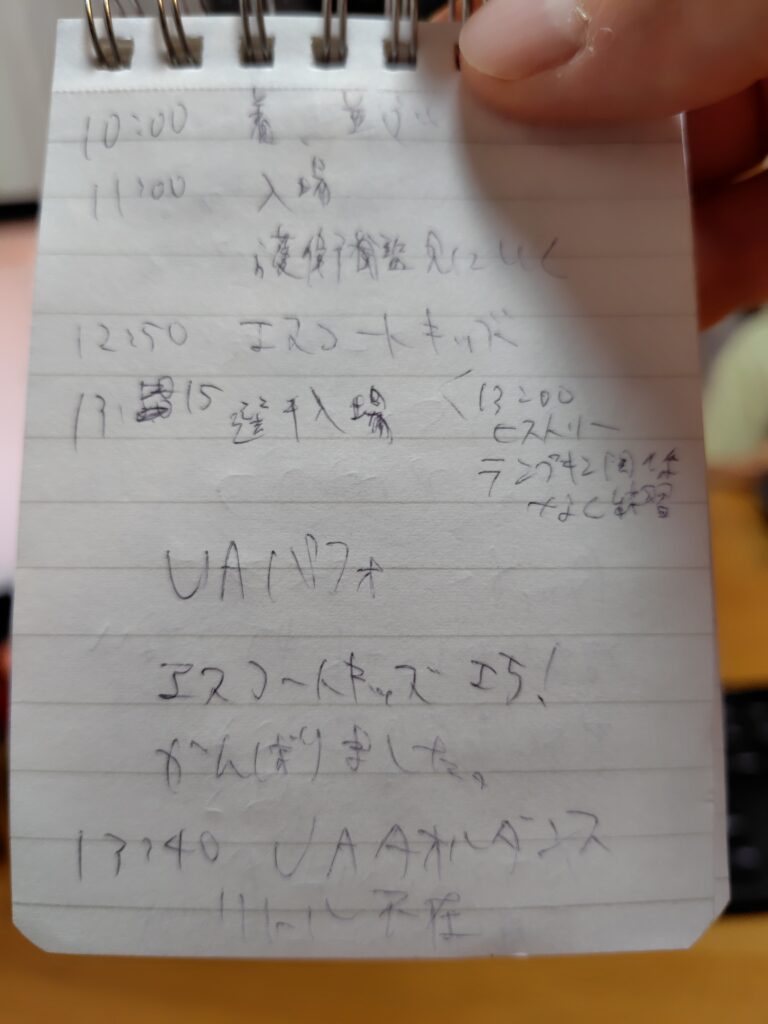 10:00 着、並ぶ
11:00 入場
護衛艦 見にいく
12:50 エスコートキッズ
13:15 選手入場
13:00
ヒストリー
テンプキン関係
なく練習
UAパフォ
エスコートキッズ エラ!
がんばりました。
13:40 UAAオルダンス
不在